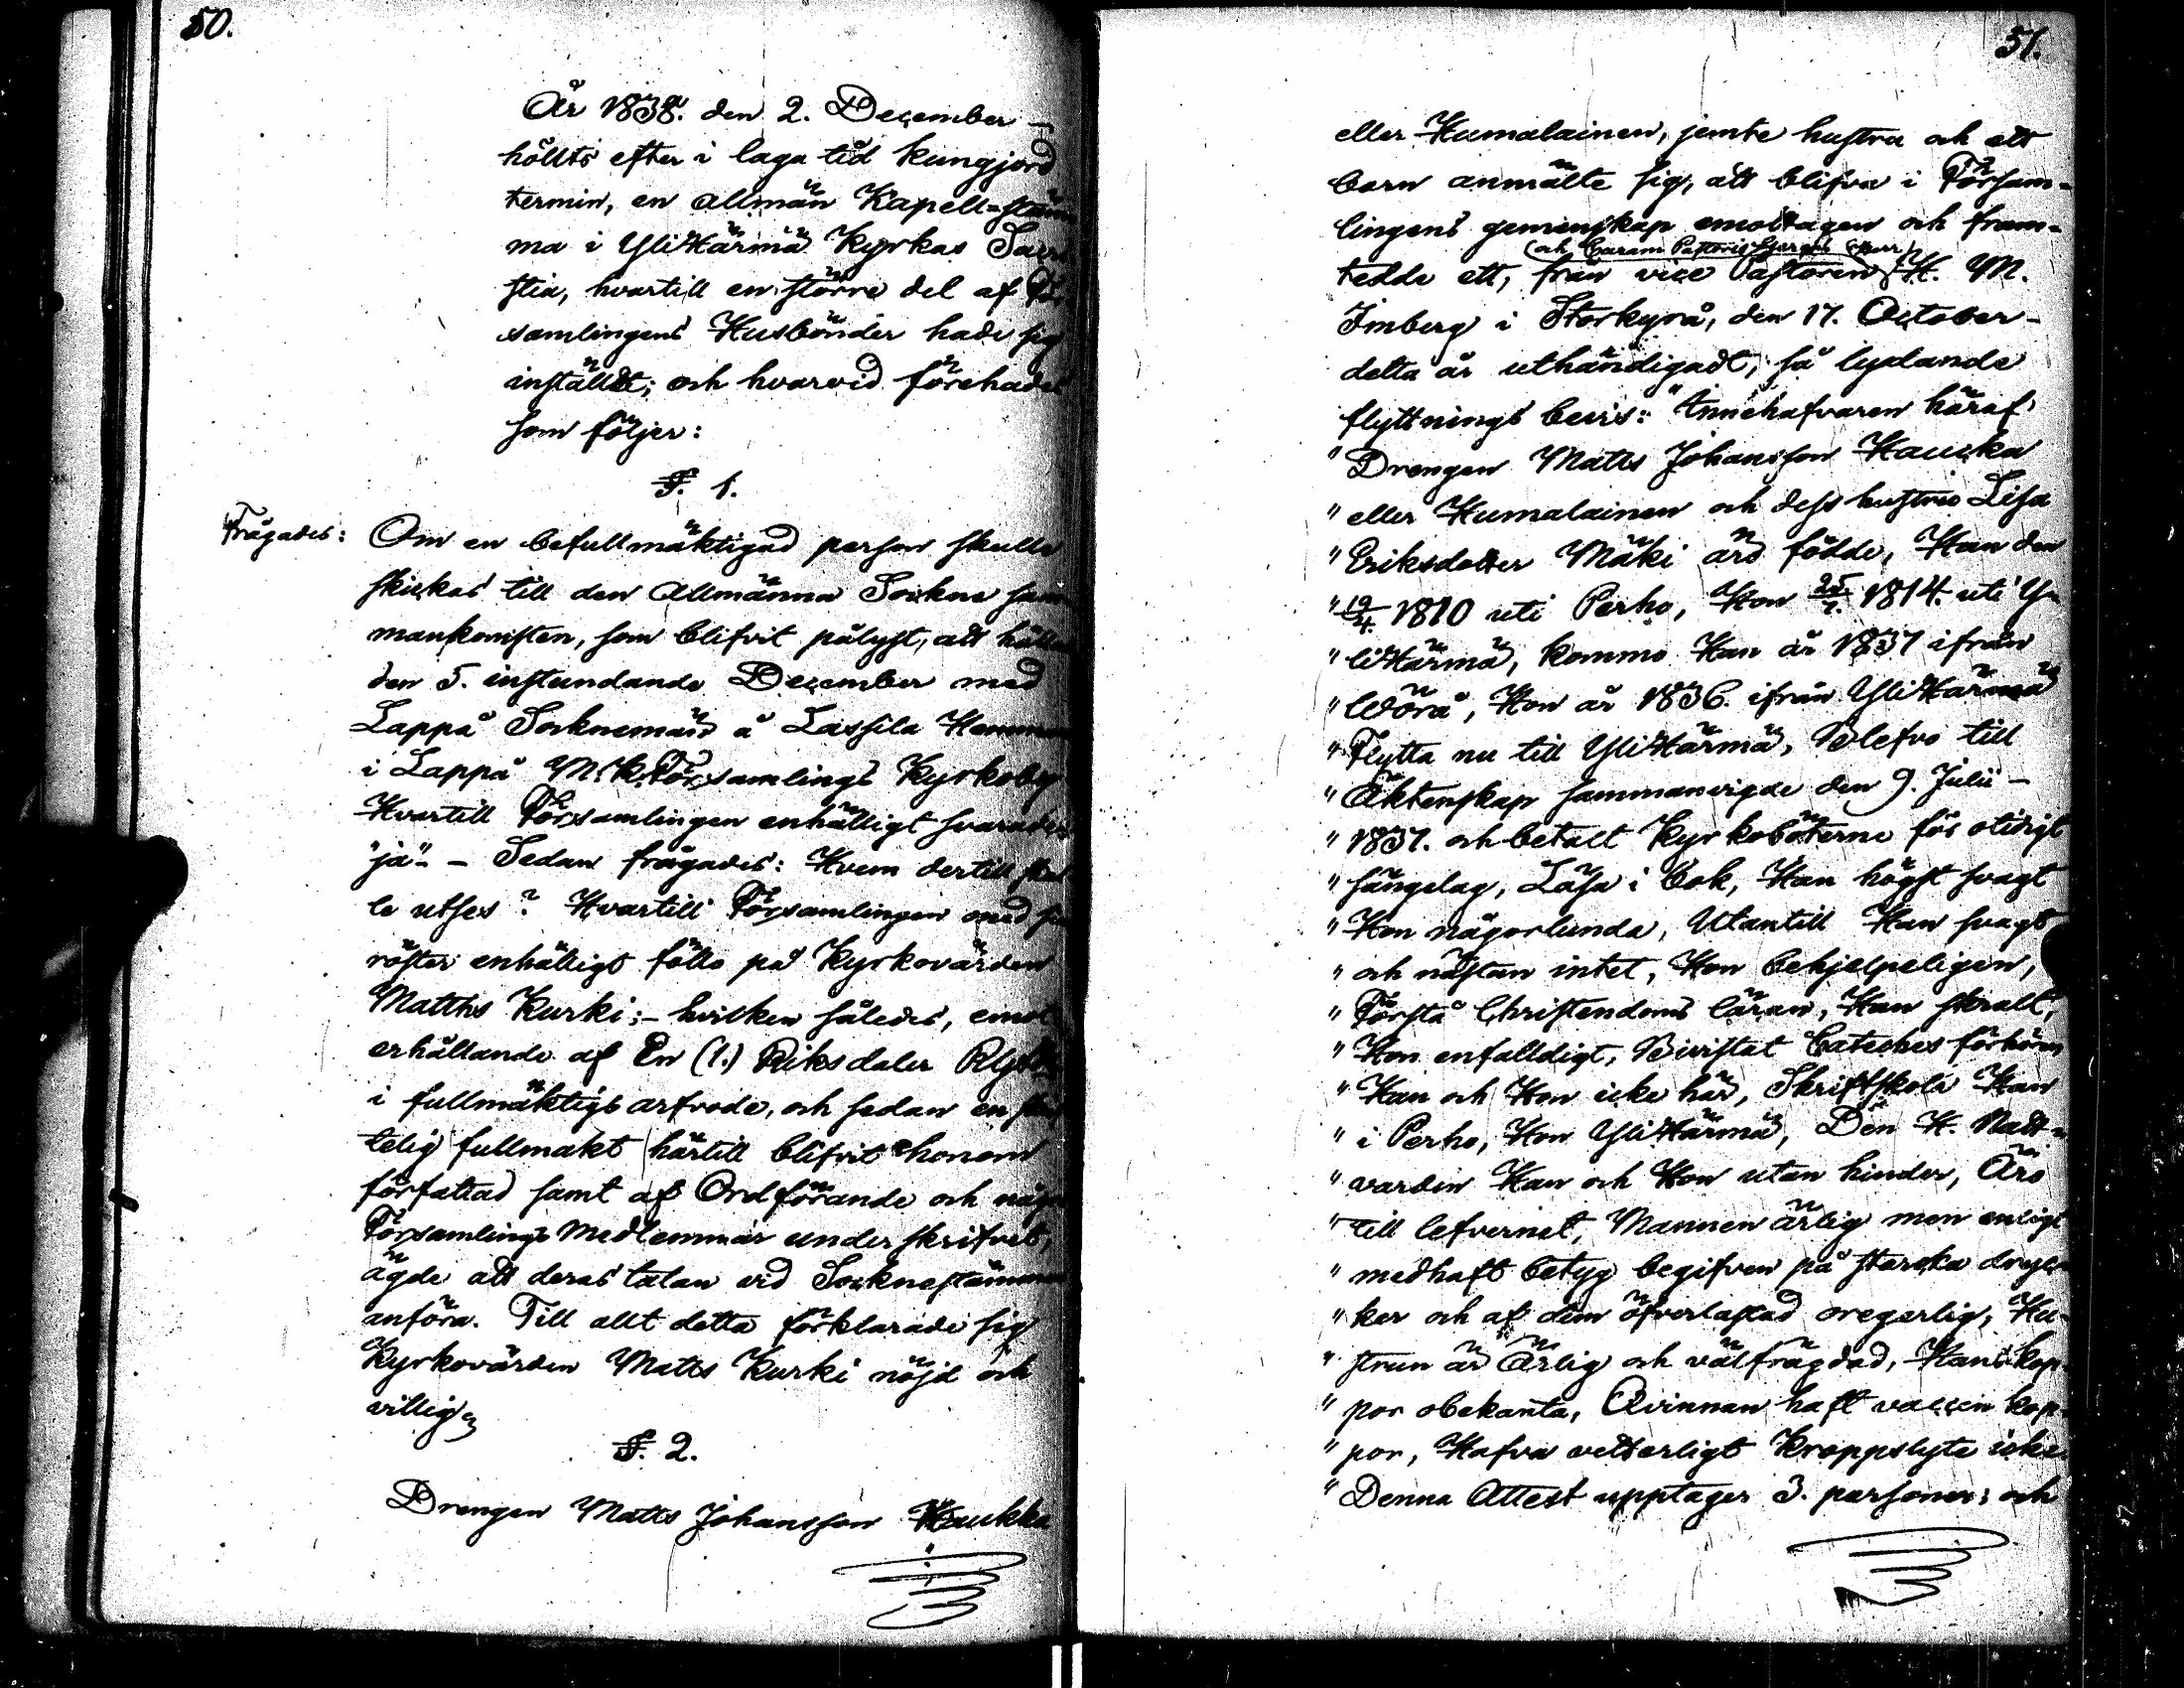 50.
År 1838. den 2. December
höllts efter i laga tid kungjord
termin, en allmän Kapell=stäm
ma i YliHärmä Kyrkas Sacri
stia, hvartill en större del af För
samlingens Husbönder hade sig
inställdt; och hvarvid förehades
som följer:
§. 1.
Frågades: Om en befullmäktigad person skulle
skickas till den Allmänna Sockne sam
mankomsten, som blifvit pålyst, att hållas
den 5. instundande December med
Lappå Socknemän å Lassila Hemman
i Lappå M.K.Församlings Kyrkoby
Hvartill Församlingen enhälligt svarades
"ja"- – Sedan frågades: Hvem dertill skul
le utses? Hvartill Församlingen med sin
röster enhälligt föllo på Kyrkovärden
Matths Kurki; – hvilken således, emot
erhållande af En (1.) Riksdaler Rgs
i fullmäktigs arfvode, och sedan en skrif
telig fullmakt härtill blifvit honom
författad samt af Ordförande och några
Församlings Medlemmar underskrifvet,
ägde att deras talan vid Socknestämman
anföra. Till allt detta förklarade sig
Kyrkovärden Matts Kurki nöjd och
villig
§. 2.
Drengen Matts Johansson Haukka
51.
eller Humalainen, jemte hustru och ett
barn anmälte sig, att blifva i Försam=
lingens gemenskap emottagen och fram=
(och Curam Pastoris Herr)
tedde ett, från vice Pastoren H. M.
Imberg i Storkyrå, den 17. October
detta år uthändigadt, så lydande
flyttnings bevis: "Innehafvaren häraf
" Drengen Matts Johansson Haucka
" eller Humalainen och dess hustru Lisa
" Eriksdotter Mäki äro födde, Han den
" 19/4. 1810 uti Perho, Hon 25/2. 1814. uti Y=
" liHärmä, kommo Han år 1837 ifrån
" Wörå, Hon år 1836. ifrån YliHärmä
" Flytta nu till YliHärmä, Blefvo till
" Äktenskap sammanvigde den 9. Julii –
" 1837. och betalt Kyrkoböterne för otidigt
" sängelag, Läsa i bok, Han högst svagt
" Hon någorlunda, Utantill Han svagt
" och nästan intet, Hon behjelpeligen,
" Förstå Christendoms läran, Han skralt,
" Hon enfalldigt, Bivistat Cateches förhören
" Han och Hon icke här, Skriftskola Han
" i Perho, Hon YliHärmä, Den H. Natt=
" varden Han och Hon utan hinder, Äro
" till lefvernet, Mannen ärlig men enligt
" medhaft betyg begifven på starcka dryc
" ker och af dem öfverlastad oregerlig, Hu=
" strun är Ärlig och välfrägdad, Hans kop
" por obekanta, Qvinnan haft vaccin kop=
" por, Hafva vetterligt kroppslyte icke
" Denna Attest upptager 3. personer; och